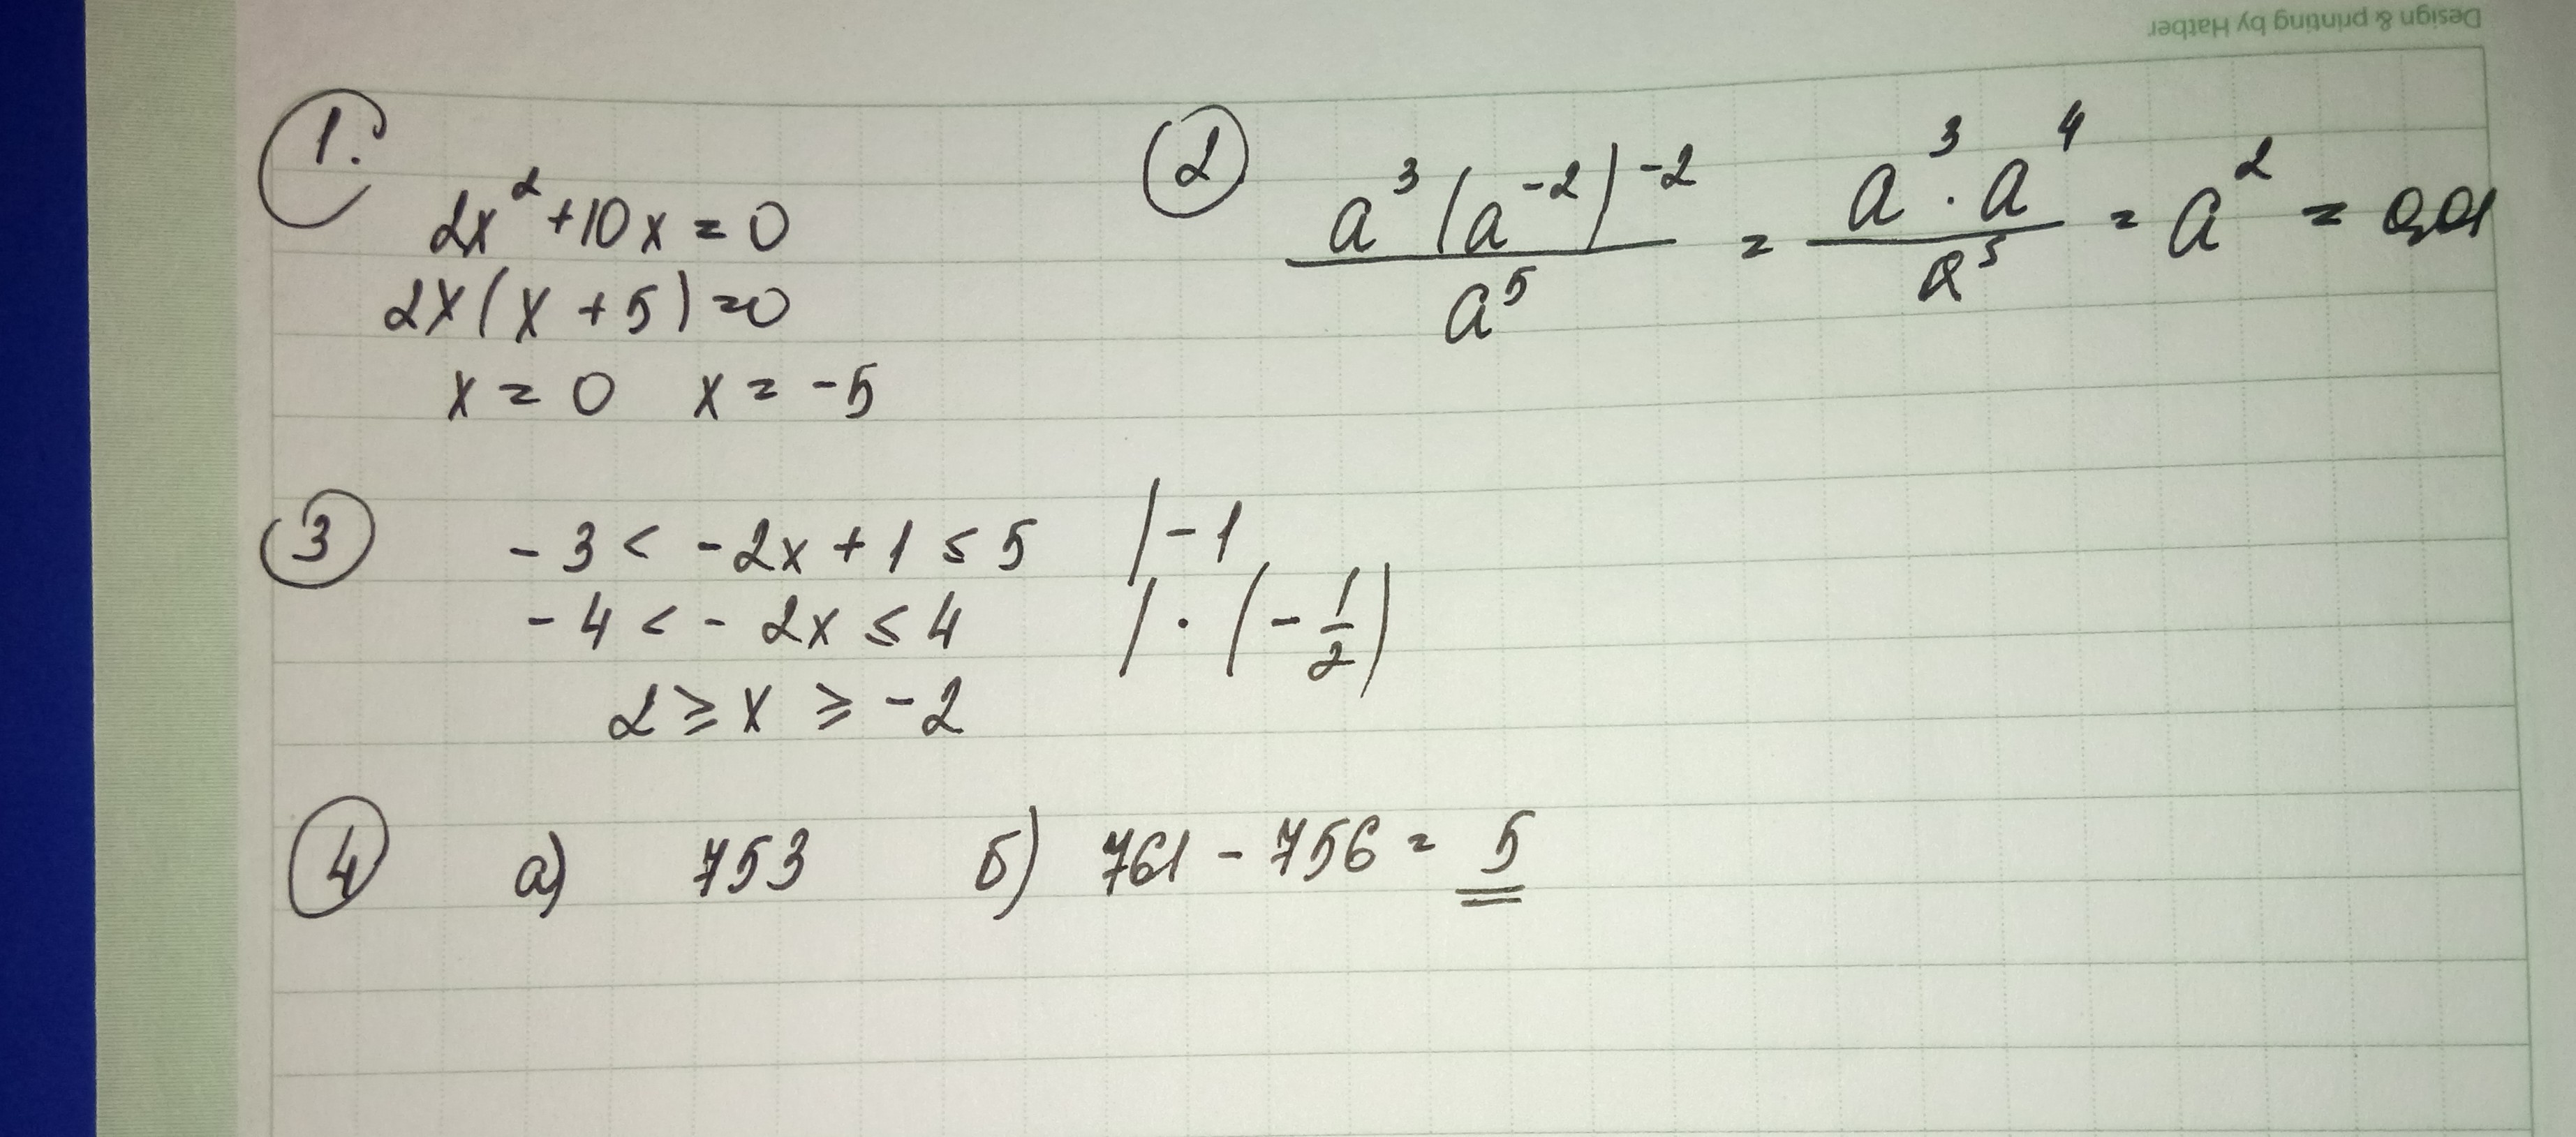 Design & printing by Hatber
1.
2x² + 10x = 0
2x(x + 5) = 0
x = 0 x = -5
2
a³(a⁻²)⁻² / a⁵ = a³ · a⁴ / a⁵ = a² = 0,01
3
-3 < -2x + 1 ≤ 5 | -1
-4 < -2x ≤ 4 | · (-1/2)
2 ⩾ x ⩾ -2
4 а) 753 б) 761 - 756 = 5